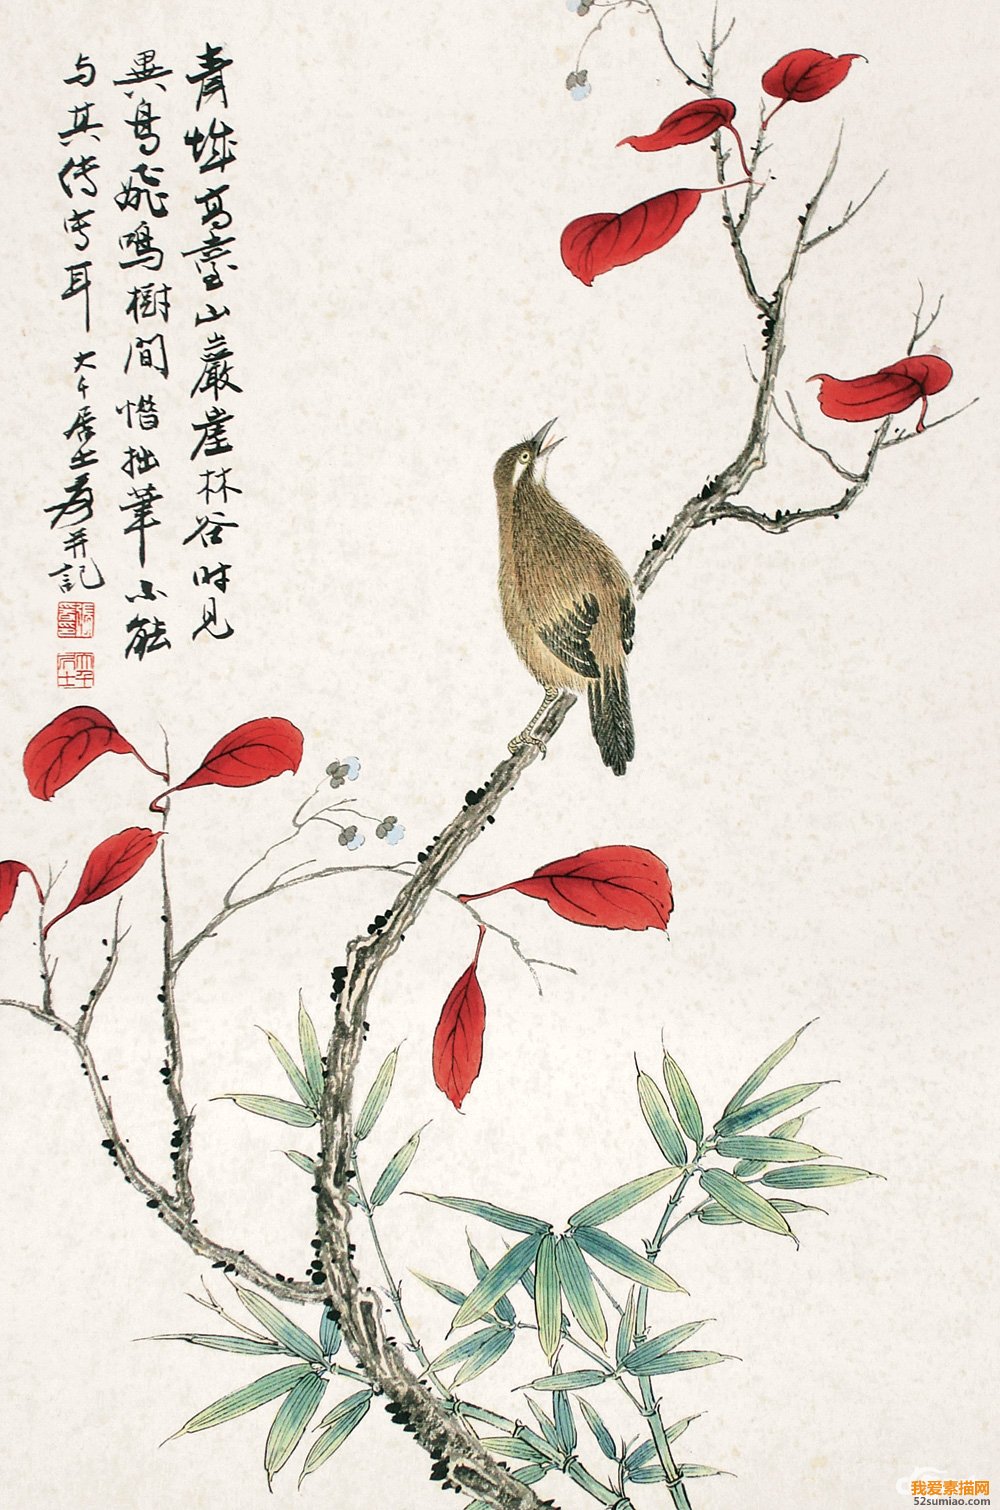 青城高臺山巖崖林谷时见
異鳥飛鳴樹間惜拙筆不能
与其傳寫耳 大千居士爰并記
張爰
大千居士
我爱素描网
52sumiao.com